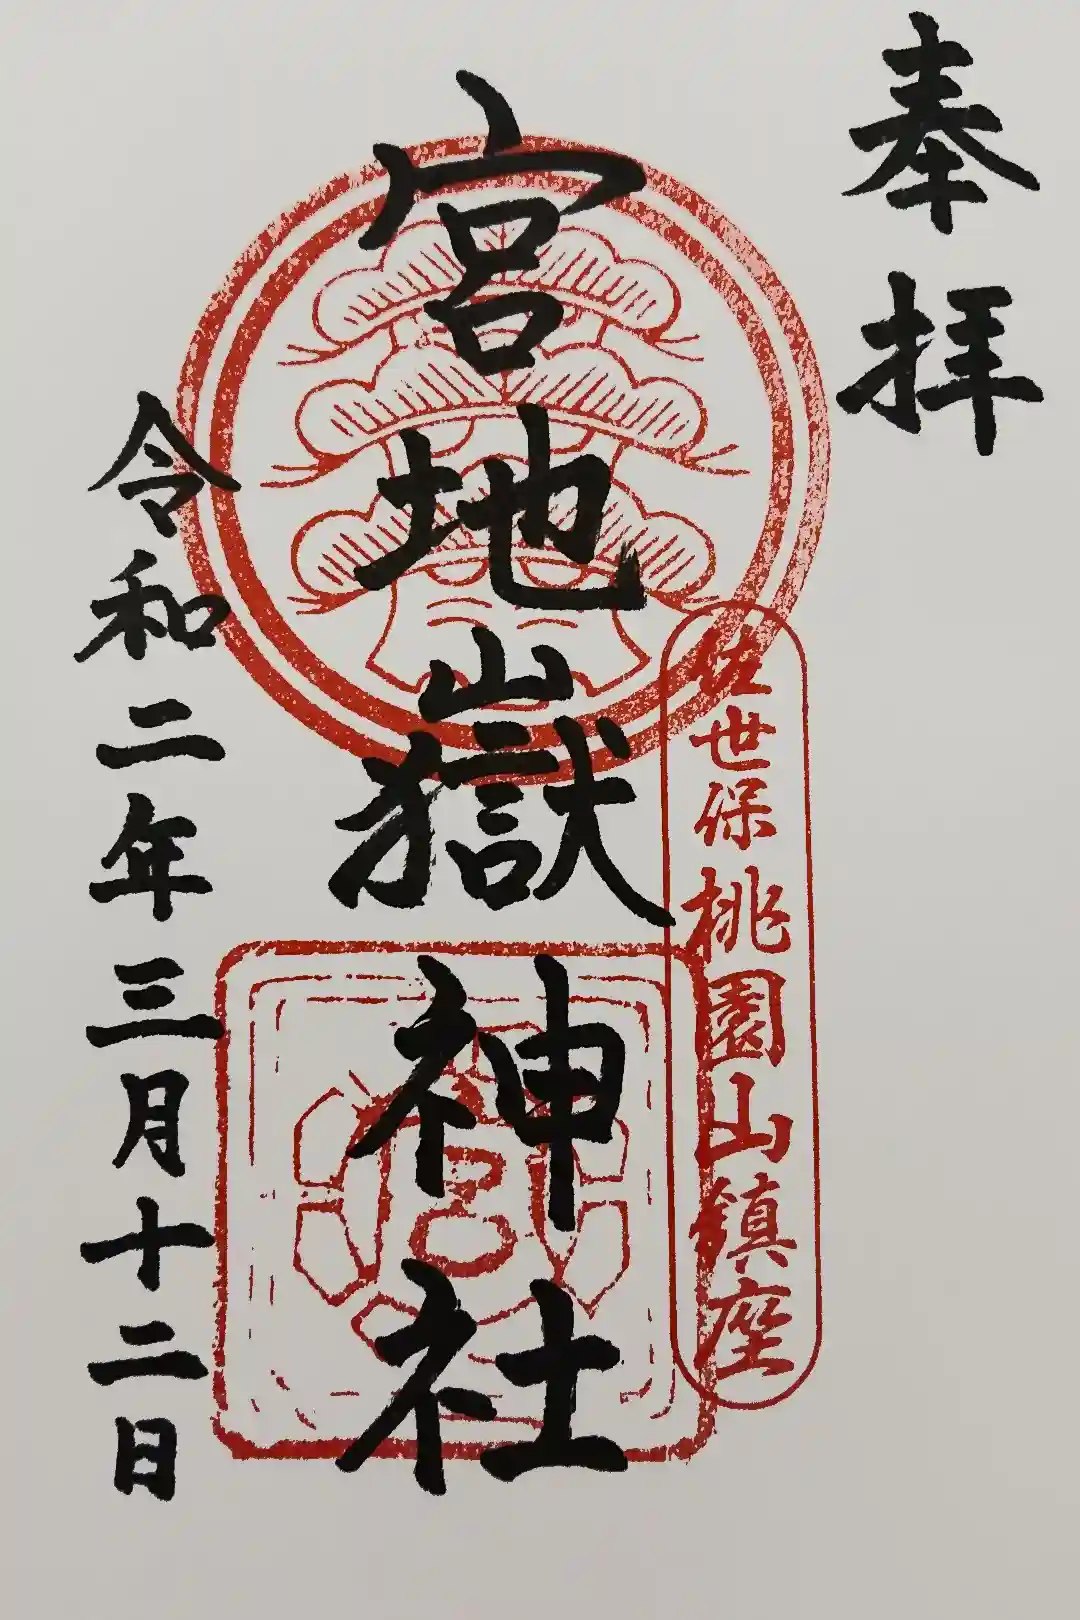 奉拝
佐世保桃園山鎮座
宮地嶽神社
宮
令和二年三月十二日